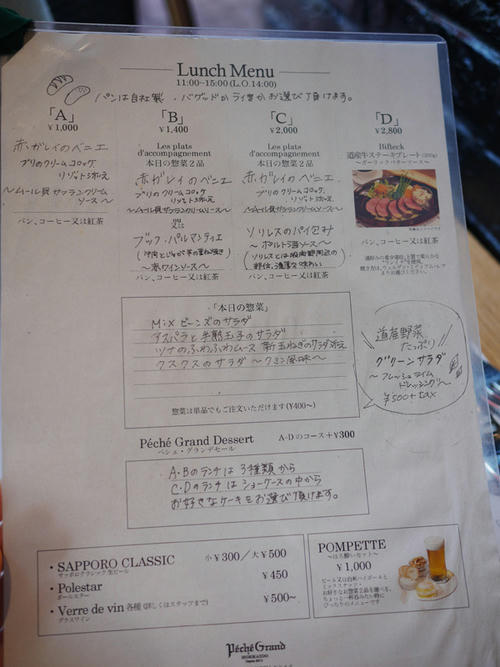 Lunch Menu
11:00~15:00(L.O.14:00)
パンは自社製・バゲットかライ麦かお選び頂けます。
「A」
¥1,000
赤ガレイのベニエ
ブリのクリームコロッケ
リゾット添え
〜ムール貝サフランクリーム
ソース〜
パン、コーヒー又は紅茶
「B」
¥1,400
Les plats
d'accompagnement
本日の惣菜2品
赤ガレイのベニエ
ブリのクリームコロッケ
リゾット添え
〜ムール貝サフランクリームソース〜
又は
ブッフ・パルマンティエ
(牛肉とじゃが芋の重ね焼き)
〜赤ワインソース〜
パン、コーヒー又は紅茶
「C」
¥2,000
Les plats
d'accompagnement
本日の惣菜2品
赤ガレイのベニエ
ブリのクリームコロッケ
リゾット添え
〜ムール貝サフランクリームソース〜
又は
ソリレスのパイ包み
〜ポルト酒ソース〜
パン、コーヒー又は紅茶
「D」
¥2,800
Bifteck
道産牛ステーキプレート(200g)
〜ガーリックバターソース〜
パン、コーヒー又は紅茶
「本日の惣菜」
Mixビーンズのサラダ
アスパラと半熟玉子のサラダ
ツナのふわふわムース 新玉ねぎのサラダ添え
クスクスのサラダ 〜クミン風味〜
惣菜は単品でもご注文いただけます(¥400~)
道産野菜
たっぷり
グリーンサラダ
〜フレッシュライム
ドレッシング〜
¥500+tax
Péché Grand Dessert
A-Dのコース+¥300
ペシェ・グランデセール
A・Bのランチは3種類から
C・Dのランチはショーケースの中から
お好きなケーキをお選び頂けます。
・SAPPORO CLASSIC 小¥300／大¥500
サッポロクラシック 生ビール
・Polestar ¥450
ポールスター
・Verre de vin 各種(詳しくはスタッフまで) ¥500~
グラスワイン
POMPETTE
〜ほろ酔いセット〜
¥1,000
Péché Grand
HOKKAIDO